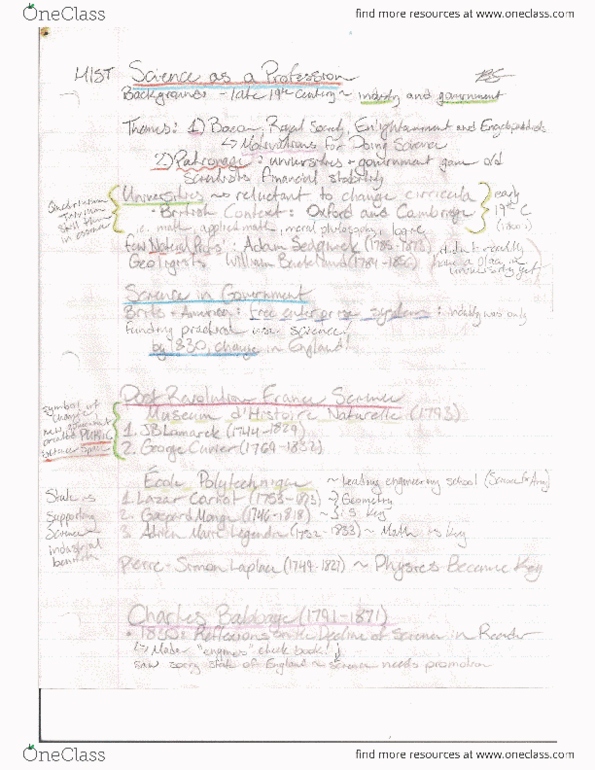 OneClass
find more resources at www.oneclass.com
HIST Science as a Profession
Background: - late 19th Century ~ industry and government
Themes: 1) Bacon, Royal Society, Enlightenment and Encyclopedists
↳ Motivations for Doing Science
2) Patronage: universities + government gave
Scientists financial stability
Universities ~> reluctant to change cirricula
• British Context: Oxford and Cambridge
i.e. math, applied math, moral philosophy, logic
early
19th C
Quadrivium
Trivium
still there
in essence
few Natural : Adam Sedgwick (1785-1873)
Geologists William Buckland (1784-1856)
didn't really
have a place in
university yet
Science in Government
Brits + America: free enterprise systems: industry was only
funding practical science!
by 1830, change in England!
Post Revolution France Science
Museum d'Histoire Naturelle (1793)
1. JB Lamarck (1744-1829)
2. George Cuvier (1769-1832)
symbol of
change:
new government
created PUBLIC
École Polytechnique ~ leading engineering school
1. Lazar Carnot (1753-1823) Geometry
2. Gaspard Monge (1746-1818) ~ is key
3. Adrien Marie Legendre (1752-1833) ~ Math is key
State is
supporting
Science ~
industrial
benefits
Pierre-Simon Laplace (1749-1827) ~ Physics Became Key
Charles Babbage (1791-1871)
• 1830: Reflexions on the Decline of Science in
↳ Made "engines" check book!
saw sorry state of England ~ science needs promotion
OneClass
find more resources at www.oneclass.com